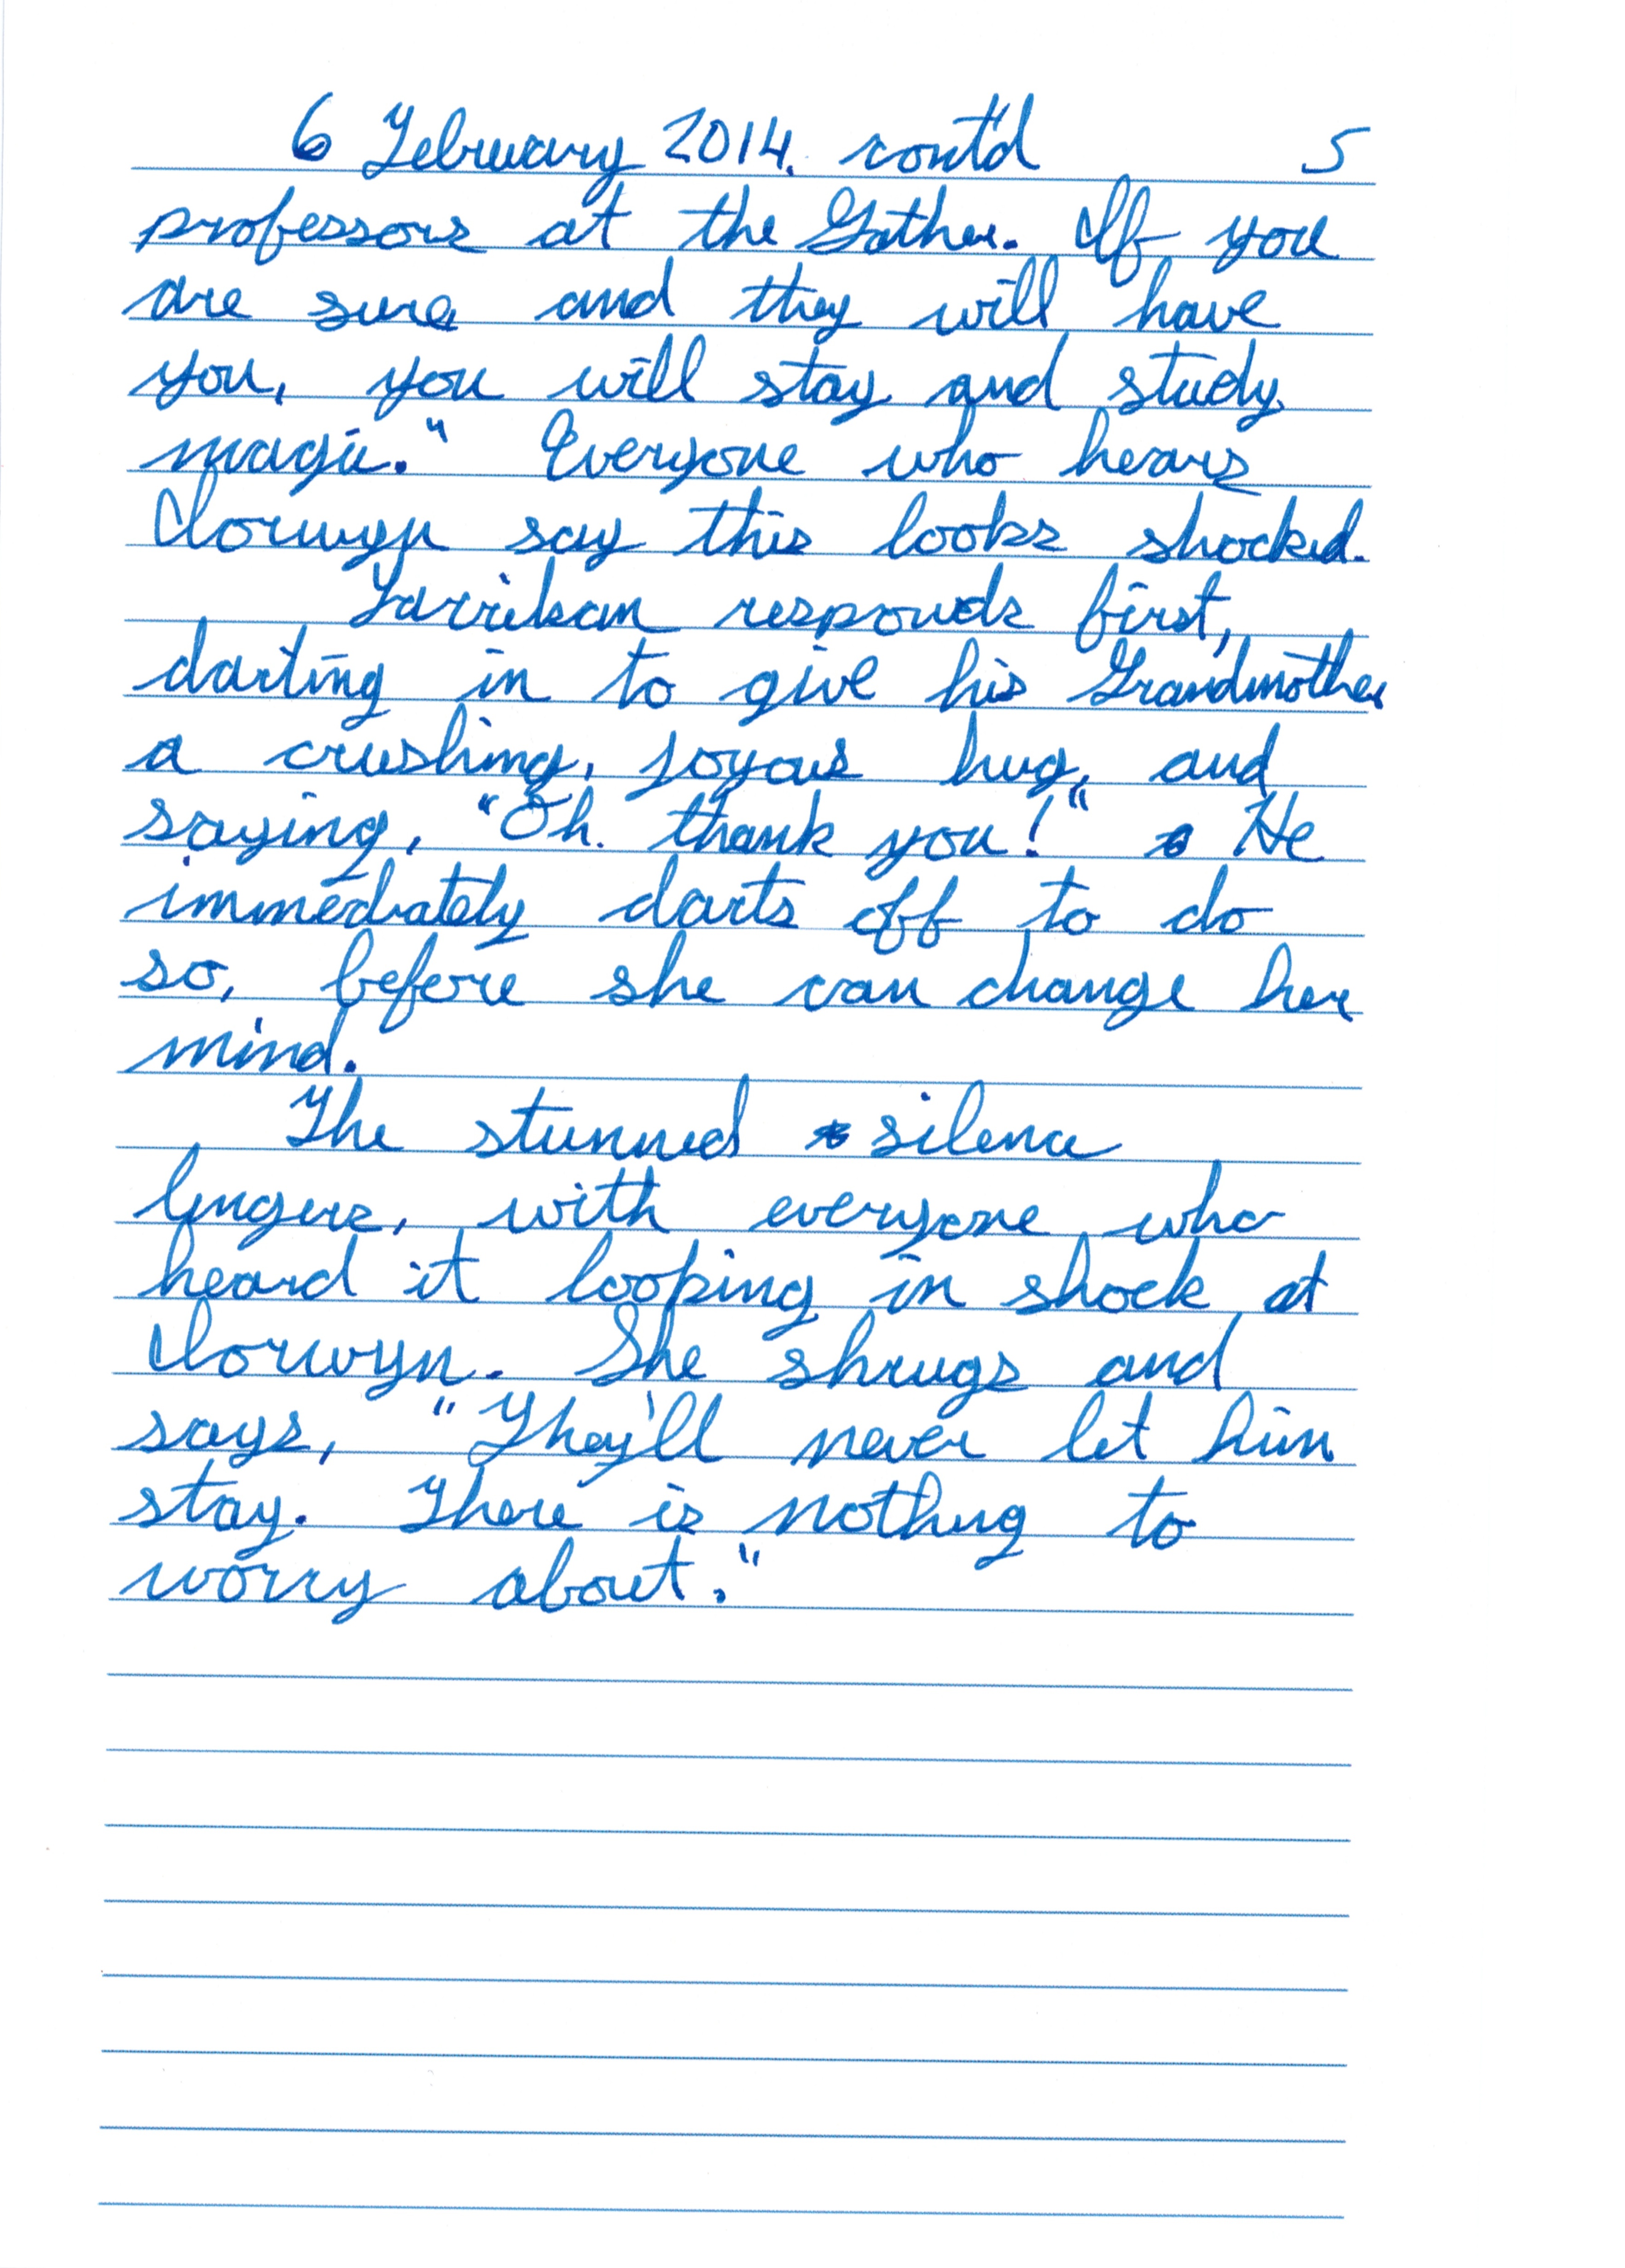 6 February 2014. cont'd 5
professors at the Gather. If you
are sure and they will have
you, you will stay and study
magic." Everyone who hears
Clorwyn say this looks shocked.
Jarrikan responds first,
darting in to give his Grandmother
a crushing, joyous hug, and
saying, "Oh. thank you!" He
immediately darts off to do
so, before she can change her
mind.
The stunned silence
lingers, with everyone who
heard it looping in shock at
Clorwyn. She shrugs and
says, "They'll never let him
stay. There is nothing to
worry about."